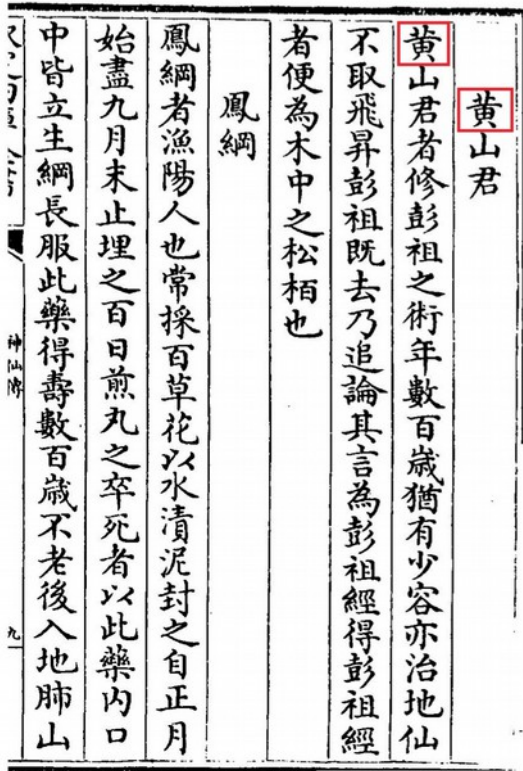 黄山君
黄山君者修彭祖之術年數百歳猶有少容亦治地仙
不取飛昇彭祖既去乃追論其言為彭祖經得彭祖經
者便為木中之松栢也
鳳綱
鳳綱者漁陽人也常採百草花以水漬泥封之自正月
始盡九月末止埋之百日煎丸之卒死者以此藥内口
中皆立生綱長服此藥得壽數百歳不老後入地肺山
神仙傳
九